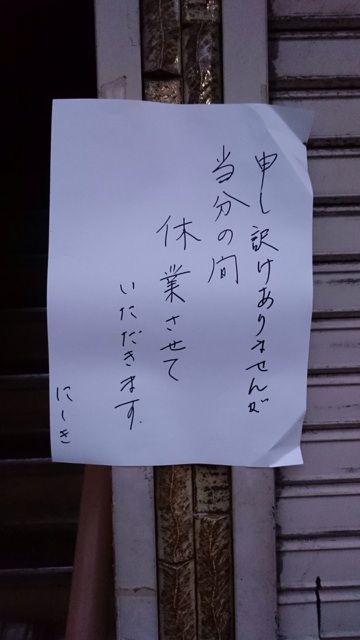 申し訳けありませんが
当分の間
休業させて
いただきます.
にしき